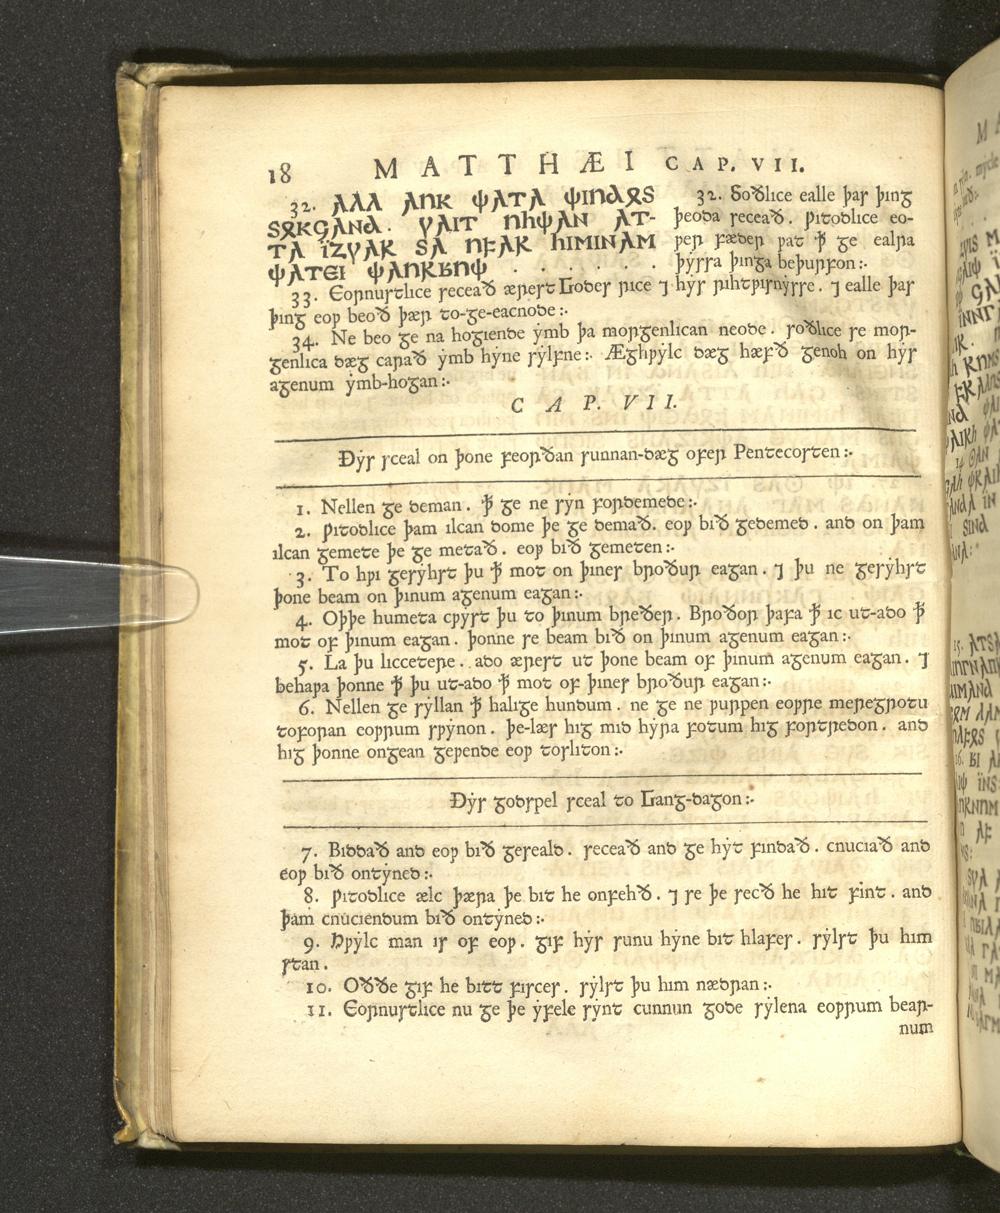 18 MATTHÆI CAP. VII.
32. 𐌰𐌻𐌻𐌰 𐌰𐌿𐌺 𐌸𐌰𐍄𐌰 𐌸𐌹𐌿𐌳𐍉𐍃
𐍃𐍉𐌺𐌾𐌰𐌽𐌳. 𐍅𐌰𐌹𐍄 𐌿𐌷𐌸𐌰𐌽 𐌰𐍄-
𐍄𐌰 𐌹̈𐌶𐍅𐌰𐍂 𐍃𐌰 𐌿𐍆𐌰𐍂 𐌷𐌹𐌼𐌹𐌽𐌰𐌼
𐌸𐌰𐍄𐌴𐌹 𐌸𐌰𐌿𐍂𐌱𐌿𐌸 . . . . . .
32. Soðlice ealle þas þing
þeoda seceað. ƿitodlice eo-
ƿer fæder ƿat ꝥ ge ealra
þẏssa þinga beþurfon:.
33. Eornustlice seceað ærest Godes rice ⁊ hẏs rihtƿisnẏsse. ⁊ ealle þas
þing eoƿ beoð þær to-ge-eacnode:.
34. Ne beo ge na hogiende ẏmb þa morgenlican neode. soðlice se mor-
genlica dæg carað ẏmb hẏne sẏlfne:. Æghƿẏlc dæg hæfð genoh on hẏs
agenum ẏmb-hogan:.
CAP. VII.
Ðẏs sceal on þone feorðan sunnan-dæg ofer Pentecosten:.
1. Nellen ge deman. ꝥ ge ne sẏn fordemede:.
2. ƿitodlice þam ilcan dome þe ge demað. eoƿ bið gedemed. and on þam
ilcan gemete þe ge metað. eoƿ bið gemeten:.
3. To hƿi gesẏhst þu ꝥ mot on þines broður eagan. ⁊ þu ne gesẏhst
þone beam on þinum agenum eagan:.
4. Oþþe humeta cƿẏst þu to þinum breðer. Broðor þafa ꝥ ic ut-ado ꝥ
mot of þinum eagan. þonne se beam bið on þinum agenum eagan:.
5. La þu liccetere. ado ærest ut þone beam of þinum agenum eagan. ⁊
behaƿa þonne ꝥ þu ut-ado ꝥ mot of þines broður eagan:.
6. Nellen ge sẏllan ꝥ halige hundum. ne ge ne ƿurpen eoƿre meregrotu
toforan eoƿrum sƿẏnon. þe-læs hig mid hẏra fotum hig fortredon. and
hig þonne ongean geƿende eoƿ tosliton:.
Ðẏs godspel sceal to Gang-dagon:.
7. Biddað and eoƿ bið geseald. seceað and ge hẏt findað. cnuciað and
eoƿ bið ontẏned:.
8. ƿitodlice ælc þæra þe bit he onfehð. ⁊ se þe secð he hit fint. and
þam cnuciendum bið ontẏned:.
9. Hƿẏlc man is of eoƿ. gif hẏs sunu hẏne bit hlafes. sẏlst þu him
stan.
10. Oððe gif he bitt fisces. sẏlst þu him nædran:.
11. Eornustlice nu ge þe ẏfele sẏnt cunnun gode sẏlena eoƿrum bear-
num